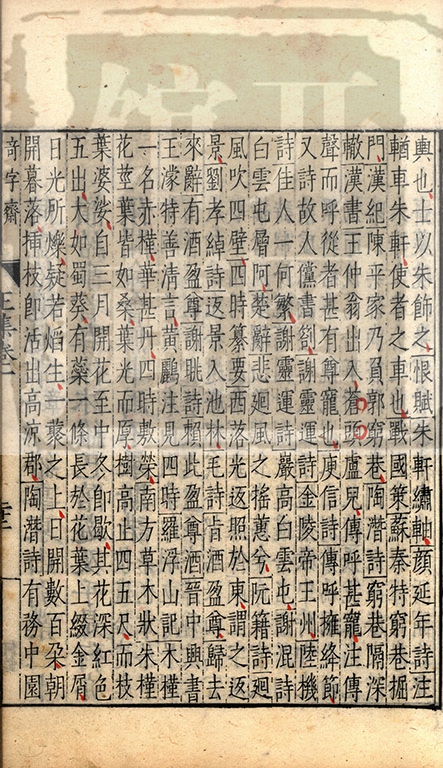 輿也士以朱飾之恨賦朱軒繡軸顔延年詩注
輶車朱軒使者之車也戰國策蘇秦特窮巷掘
門漢紀陳平家乃負郭窮巷陶潛詩窮巷隔深
轍漢書王仲翁出入蒼頭廬兒傳呼甚寵注傳
聲而呼從者甚有尊寵也庾信詩傳呼擁絳節
又詩故人儻書劄謝靈運詩金陵帝王州陸機
詩佳人一何繁謝靈運詩巖高白雲屯謝混詩
白雲屯層阿楚辭悲廻風之搖蕙兮阮籍詩廻
風吹四壁四時纂要西落光返照於東謂之返
景劉孝綽詩返景入池林毛詩肯酒盈尊歸去
來辭有酒盈尊謝朓詩賴此盈尊酒晉中興書
王濛特善清言黄鸝注見四時羅浮山記木槿
一名赤槿華甚丹四時敷榮南方草木狀朱槿
花莖葉皆如桑葉光而厚樹高止四五尺而枝
葉婆娑自三月開花至中冬卽歇其花深紅色
五出大如蜀葵有蘂一條長於花葉上綴金屑
日光所爍疑若焰生一叢之上日開數百朶朝
開暮落挿枝卽活出高凉郡陶潛詩有務中園
奇字齋